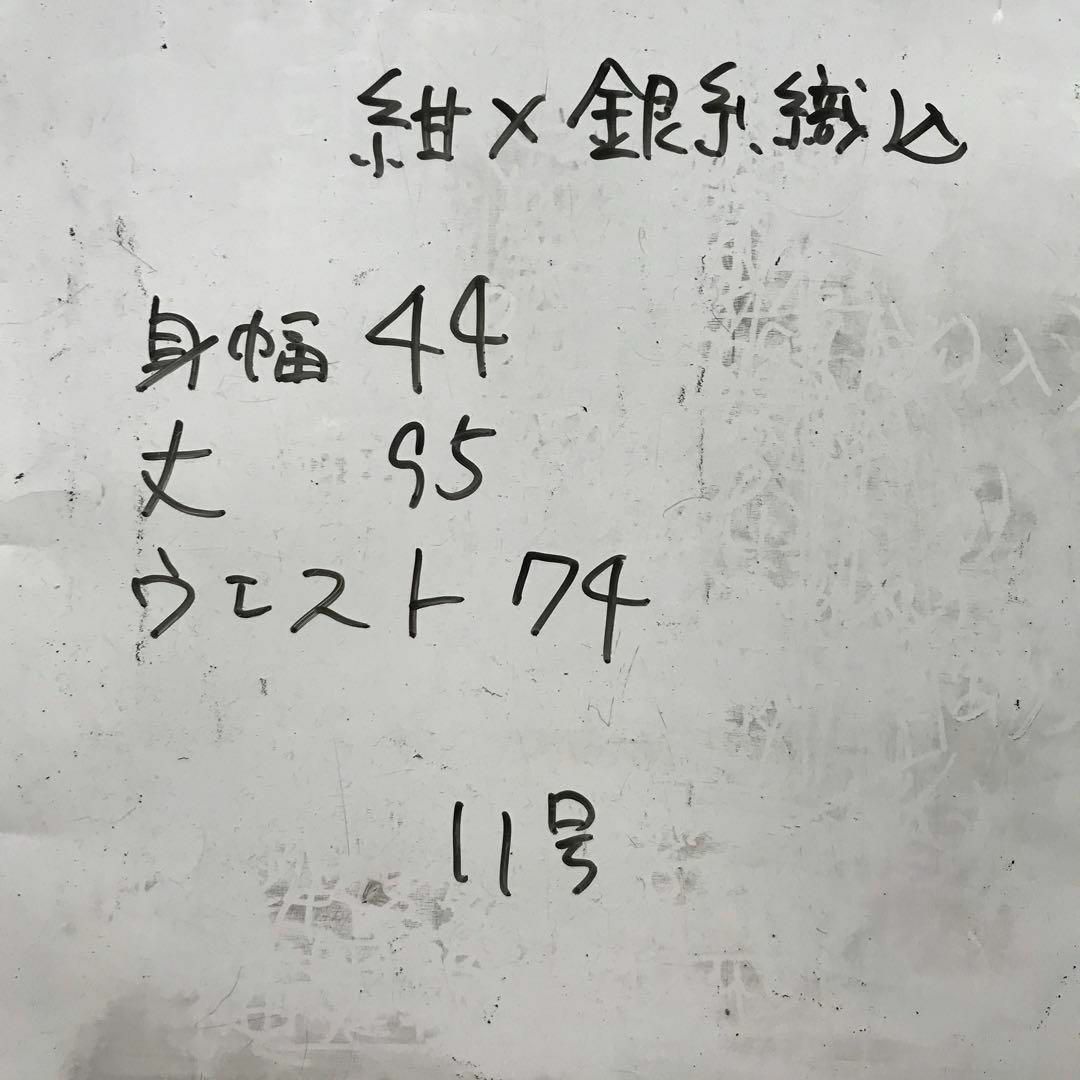 紺×銀糸織込
身幅 44
丈 95
ウエスト 74
11号